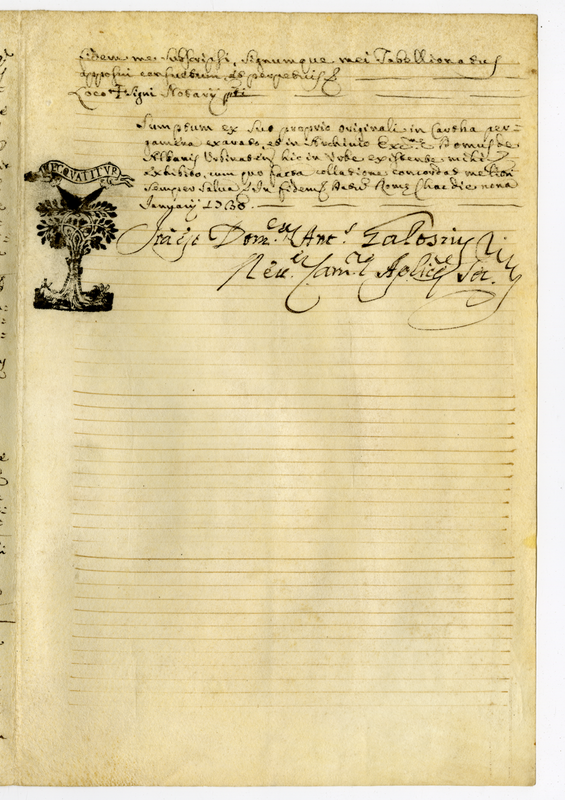 fidem me subscripsi, signumque mei Tabellionatus
apposui consuetum, et perpetuis &
Loco + signi Notarij
Sumptum ex suo proprio originali in Cartha per=
gamena exarato, et in Archivio Exc.me Domus de
Albanis Urbinaten hic in Urbe existente mihi
exhibito, cum quo facta collatione concordat melion
semper salva & In fidem & Datum Romæ hac die nona
Januarij 1738.
NEC QVATITVR
Ita est Dom.cus Ant.s Galosius
Rev. Cam. Aplicæ